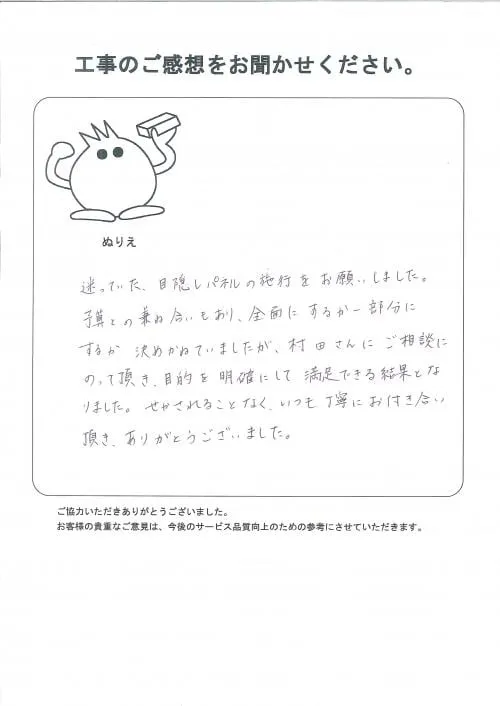 工事のご感想をお聞かせください。
ぬりえ
迷っていた、目隠しパネルの施行をお願いしました。
予算との兼ね合いもあり、全面にするか一部分に
するか 決めかねていましたが、村田さんにご相談に
のって頂き、目的を明確にして満足できる結果とな
りました。せかされることなく、いつも丁寧にお付き合い
頂き、ありがとうございました。
ご協力いただきありがとうございました。
お客様の貴重なご意見は、今後のサービス品質向上のための参考にさせていただきます。